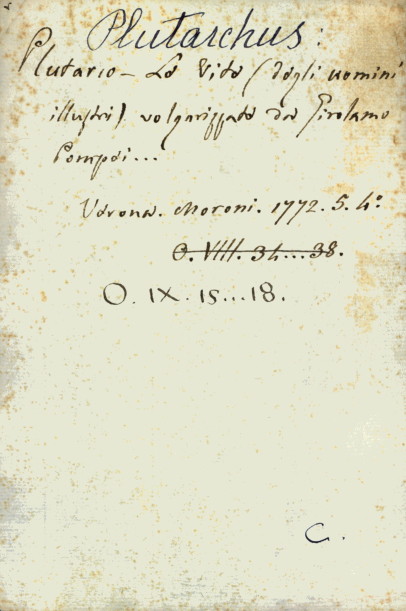 Plutarchus:
Plutarco - Le Vite (degli uomini
illustri) volgarizzate da Girolamo
Pompei...
Verona. Moroni. 1772. 5. 4º
O. VIII. 34...38.
O. IX. 15...18.
C.